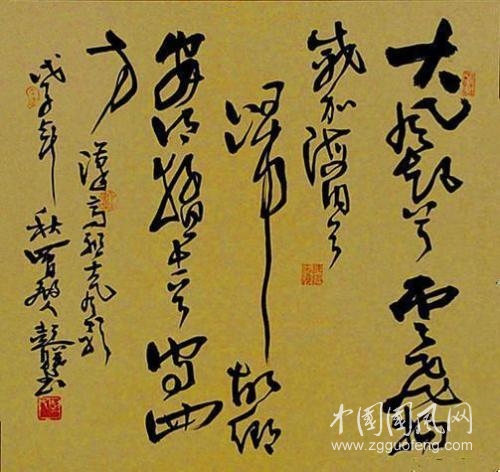 大風起兮雲飛揚
威加海内兮
歸故鄉
安得猛士兮守四
方
漢高祖大風歌
戊子年秋
中国国风网
www.zgguofeng.com